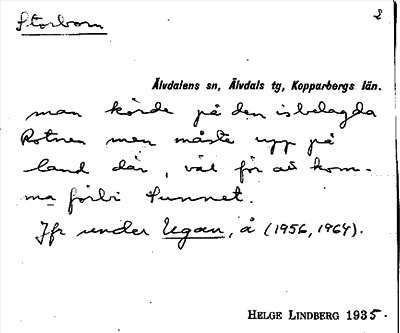 Storborn 2
Älvdalens sn, Älvdals tg, Kopparbergs län.
man körde på den isbelagda
Rotnen men måste upp på
land där, väl för att kom-
ma förbi Sunnet.
Jfr under Ugan, å (1956, 1964).
HELGE LINDBERG 1935.